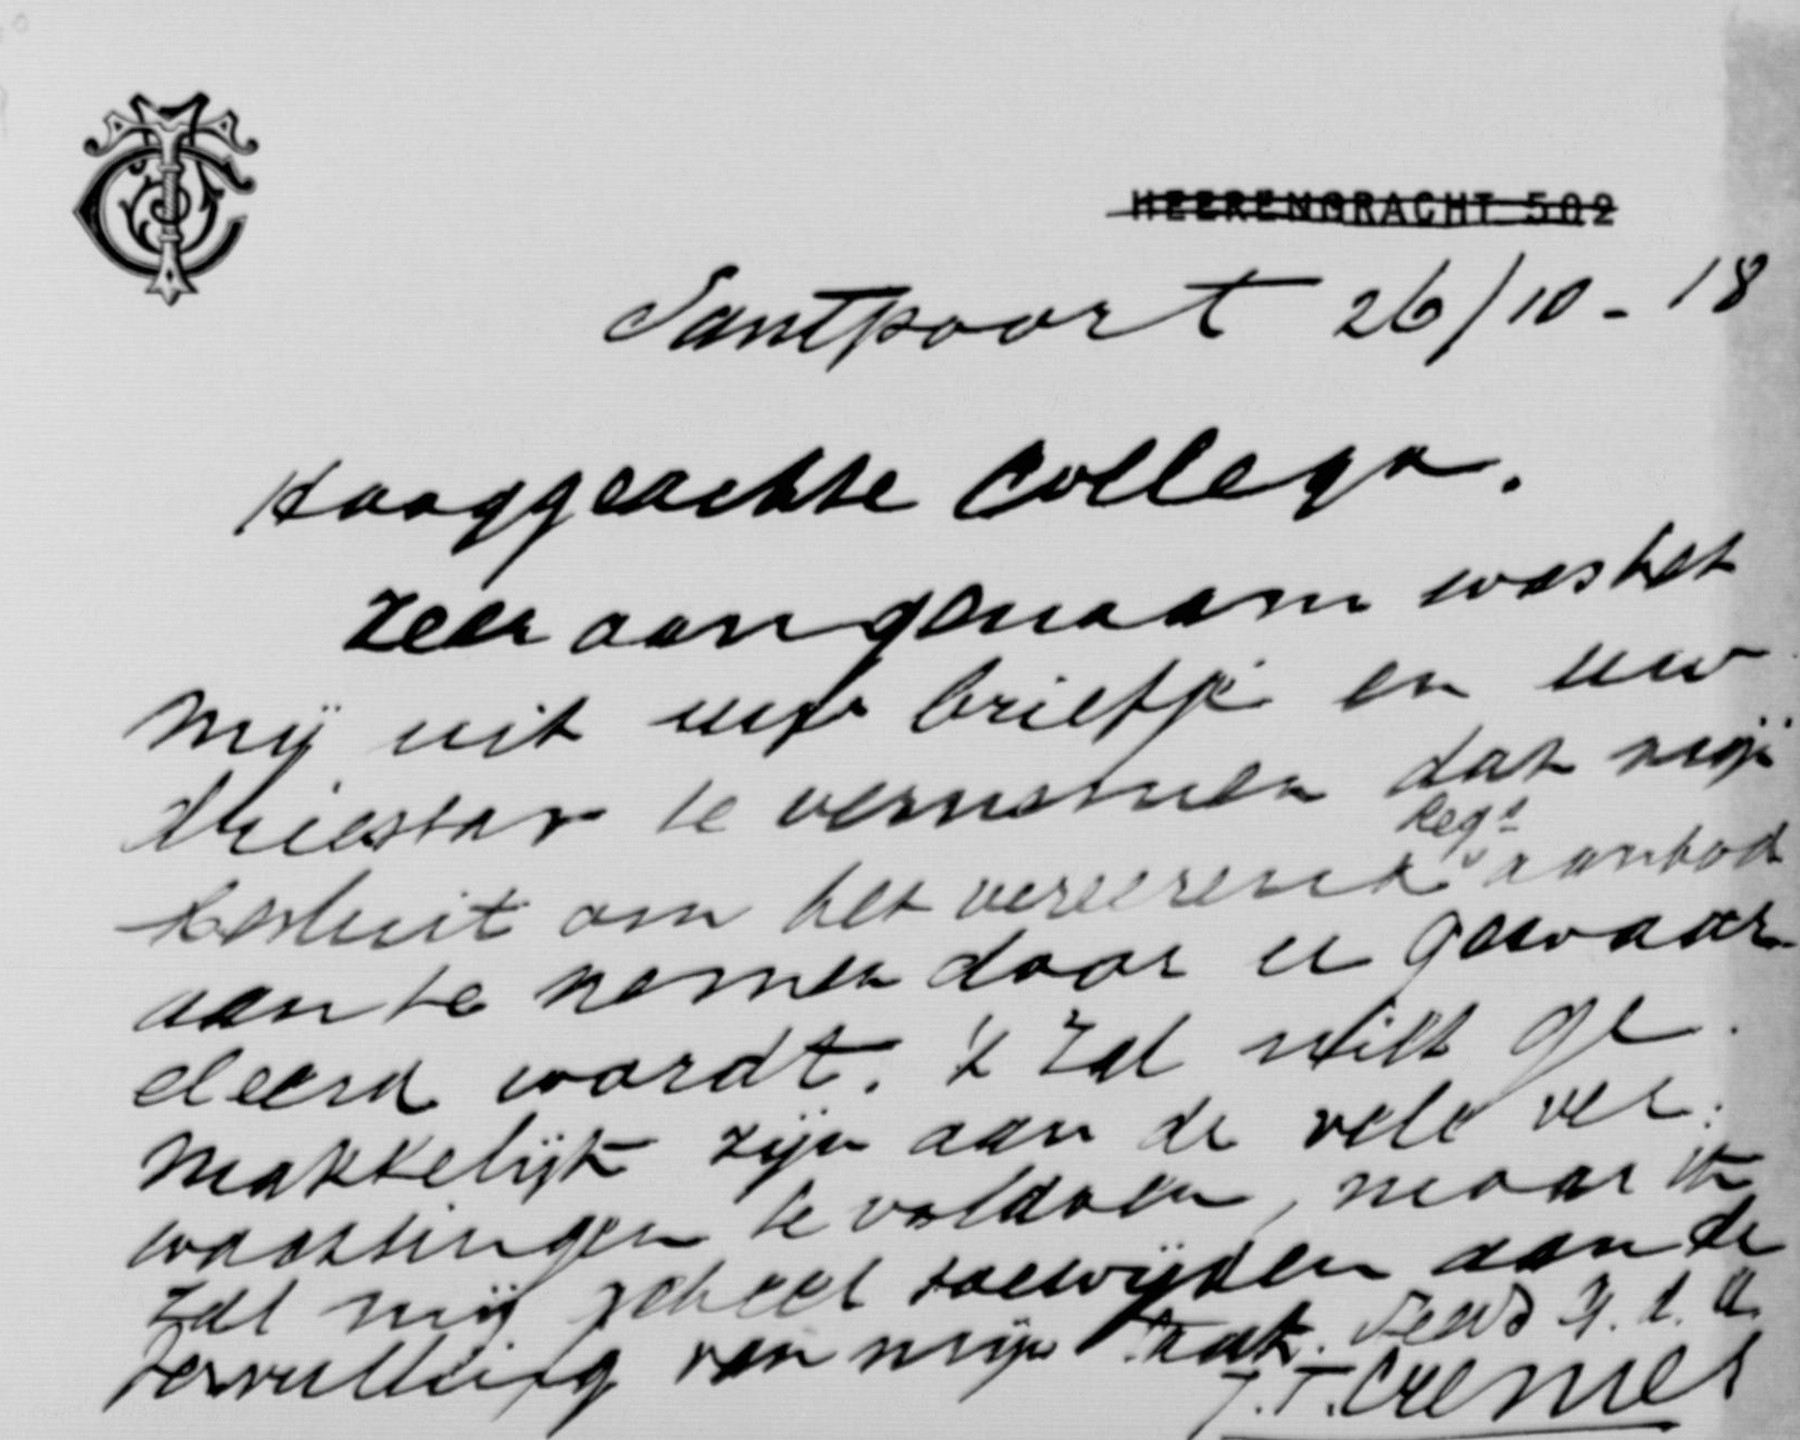 HEERENGRACHT 502
Santpoort 26/10-18
Hooggeachte Collega.
Zeer aangenaam was het
mij uit uw briefje en uw
te vernemen dat mijn
besluit om het vereerend Regs aanbod
aan te nemen door u gewaar
deerd wordt. 't Zal niet ge
makkelijk zijn aan de vele ver
wachtingen te voldoen, maar ik
zal mij geheel toewijden aan de
vervulling van mijn taak. Steeds
J.T. Cremer